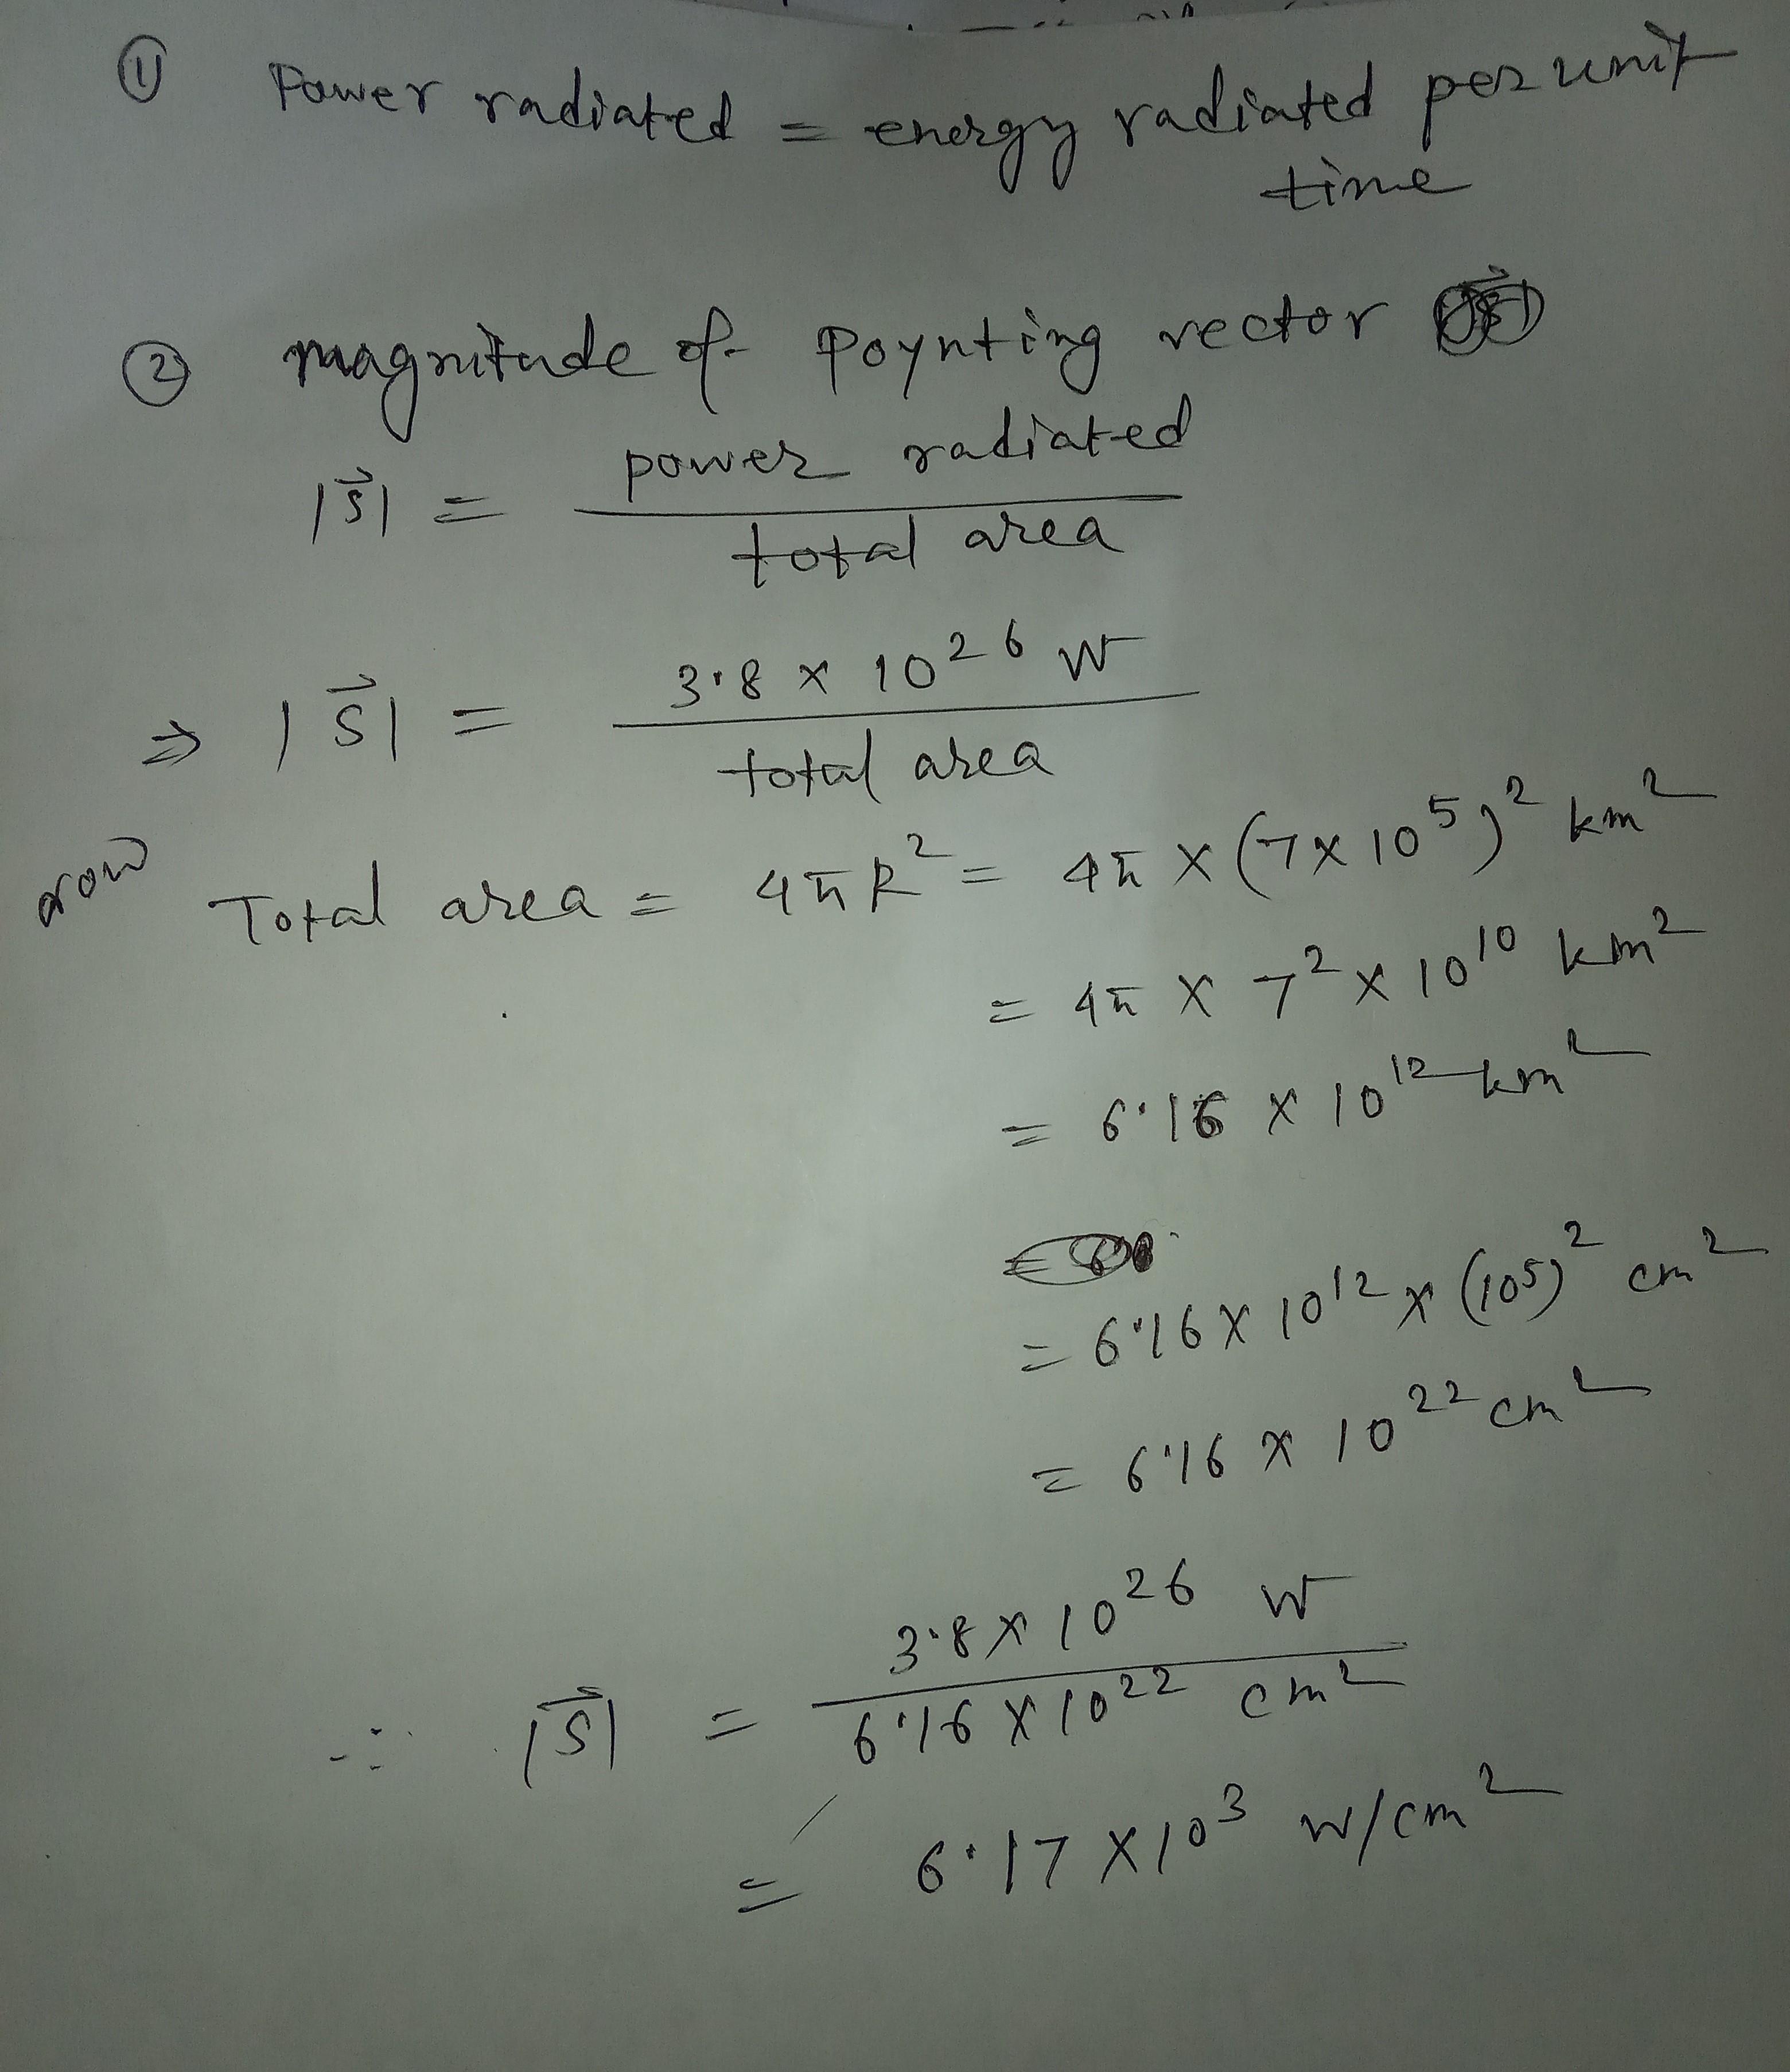 ① Power radiated = energy radiated per unit
time
② magnitude of Poynting vector
|S⃗| = power radiated / total area
⇒ |S⃗| = 3.8 × 10²⁶ W / total area
now Total area = 4πR² = 4π × (7 × 10⁵)² km²
= 4π × 7² × 10¹⁰ km²
= 6.16 × 10¹² km²
= 6.16 × 10¹² × (10⁵)² cm²
= 6.16 × 10²² cm²
∴ |S⃗| = 3.8 × 10²⁶ W / 6.16 × 10²² cm²
= 6.17 × 10³ W/cm²